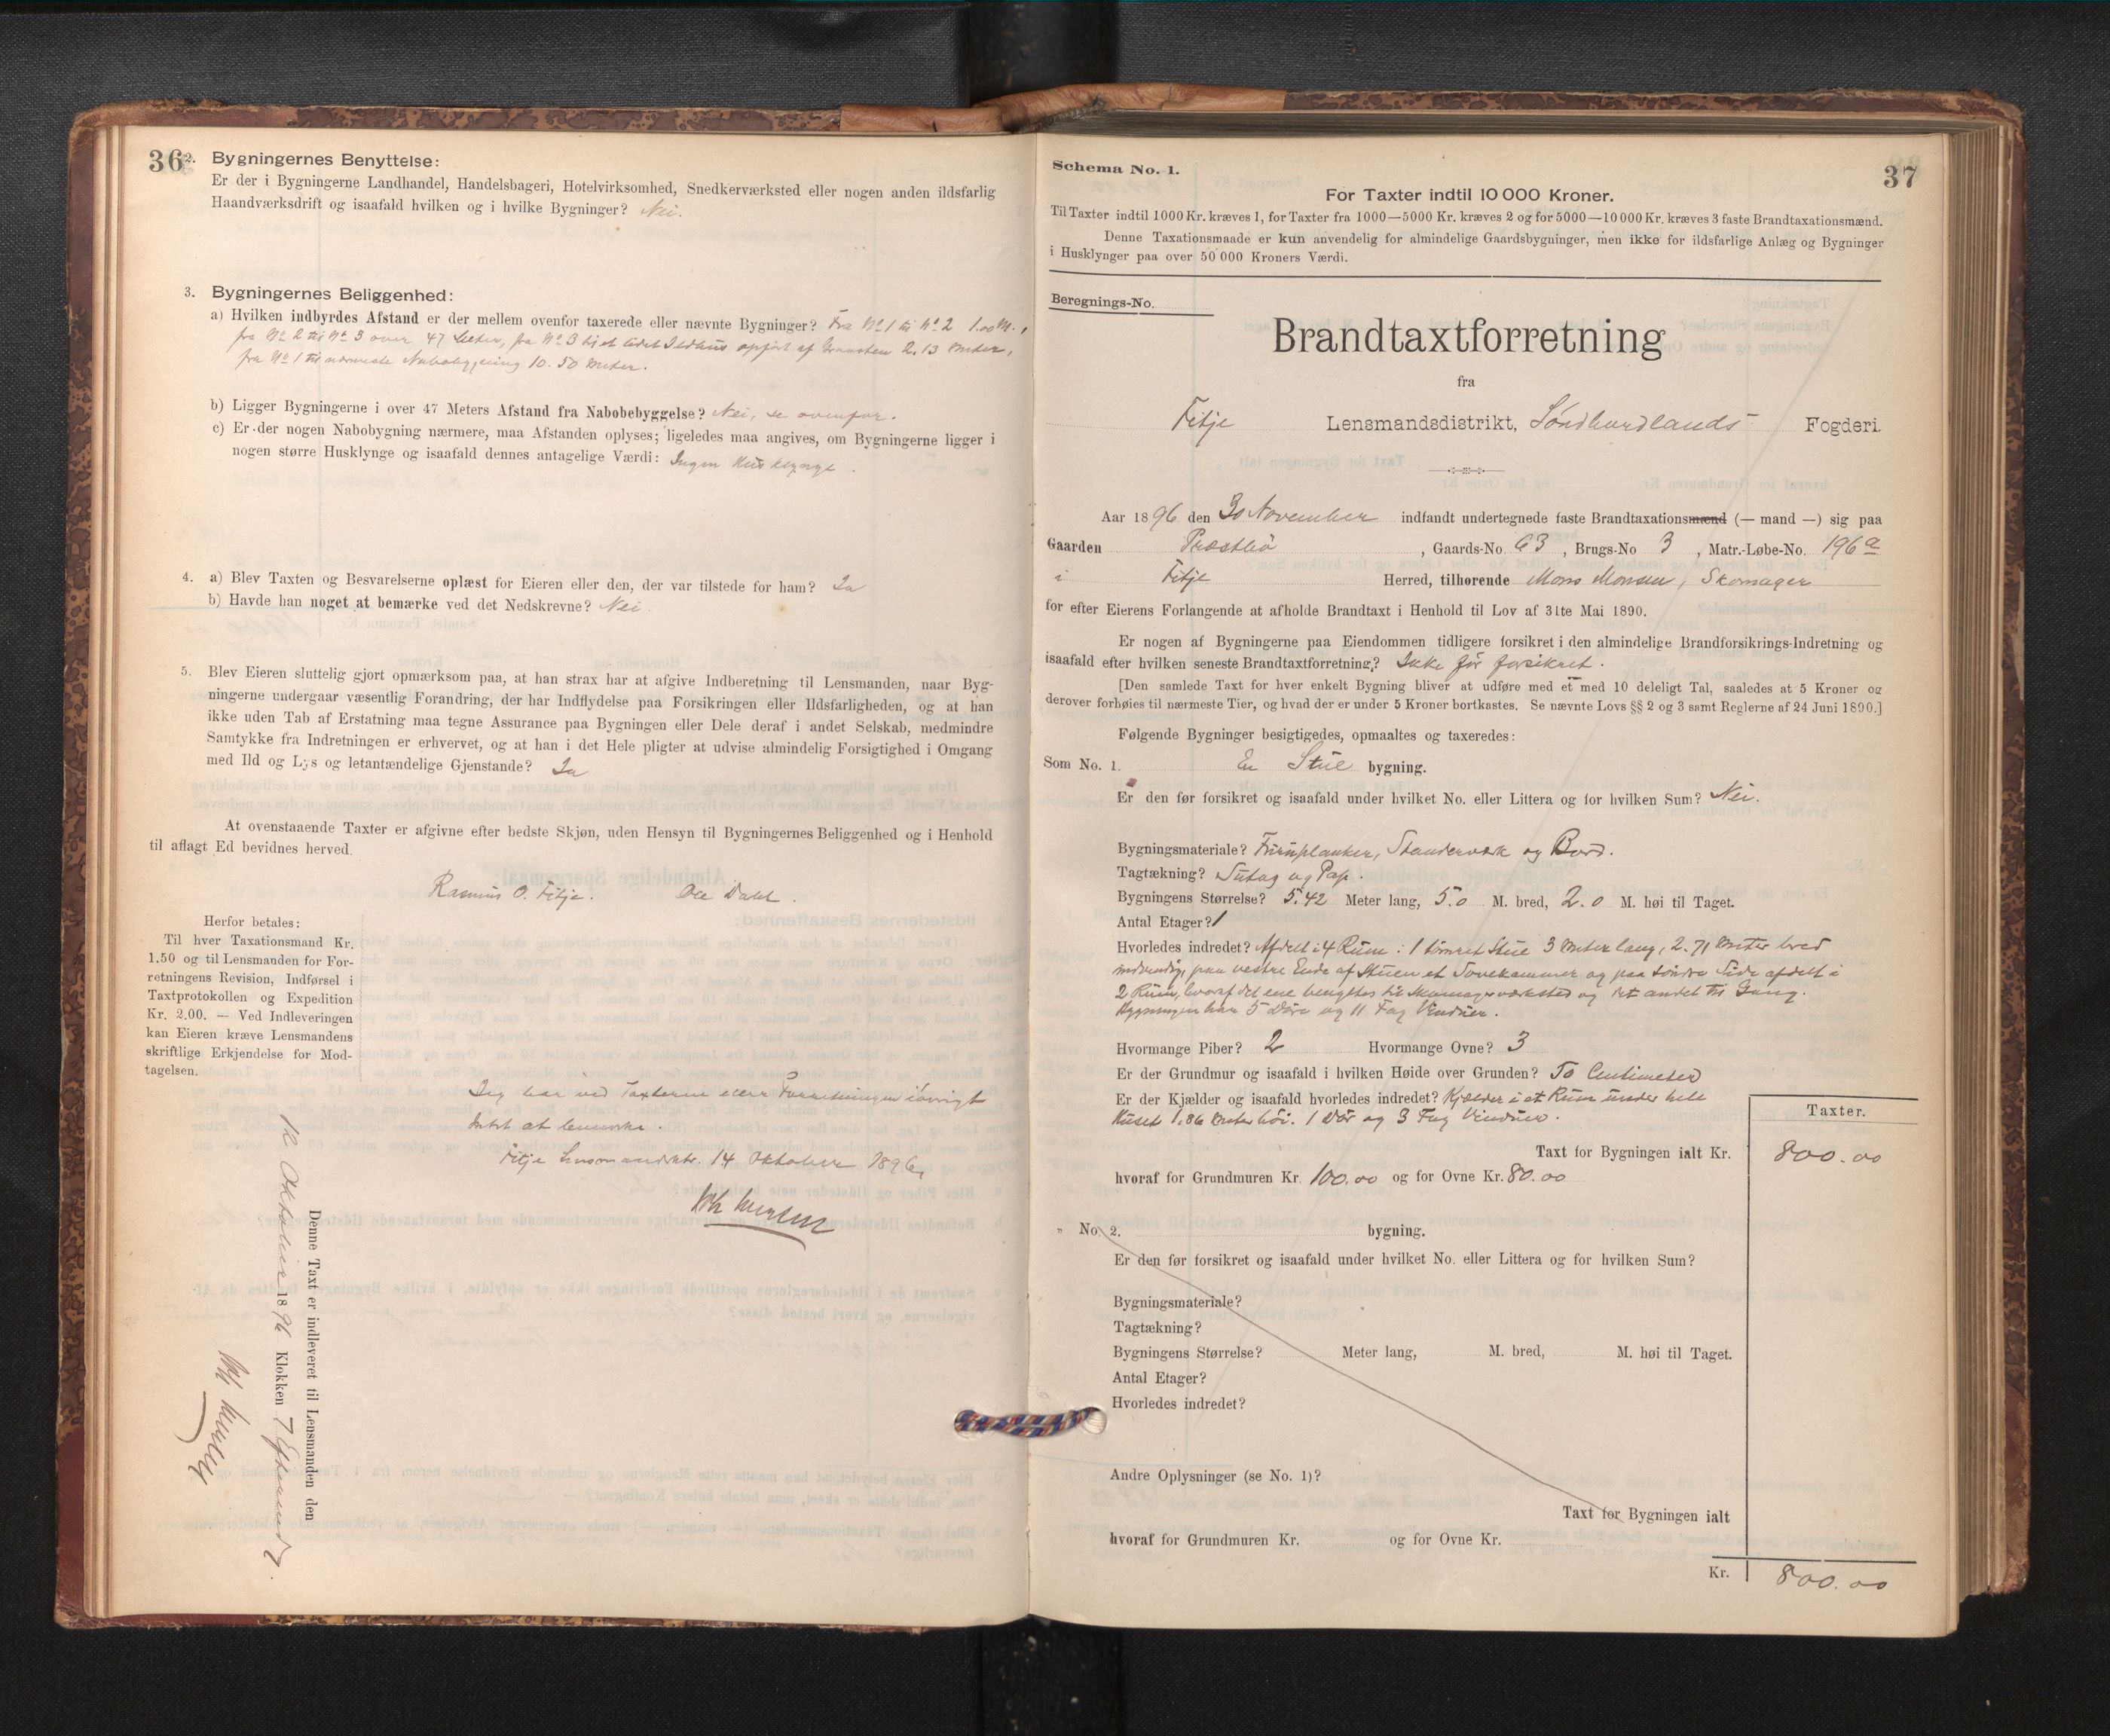 36
2. Bygningernes Benyttelse:
Er der i Bygningerne Landhandel, Handelsbageri, Hotelvirksomhed, Snedkerværksted eller nogen anden ildsfarlig
Haandværksdrift og isaafald hvilken og i hvilke Bygninger? Nei.
3. Bygningernes Beliggenhed:
a) Hvilken indbyrdes Afstand er der mellem ovenfor taxerede eller nævnte Bygninger? Fra No 1 til No 2 1.00 M.,
fra No 2 til No 3 over 47 Meter, fra No 3 til et lidet Ildhus opført af Graasten 2.13 Meter,
fra No 1 til nærmeste Nabobygning 10.50 Meter.
b) Ligger Bygningerne i over 47 Meters Afstand fra Nabobebyggelse? Nei, se ovenfor.
c) Er der nogen Nabobygning nærmere, maa Afstanden oplyses; ligeledes maa angives, om Bygningerne ligger i
nogen større Husklynge og isaafald dennes antagelige Værdi: Ingen Husklynge.
4. a) Blev Taxten og Besvarelserne oplæst for Eieren eller den, der var tilstede for ham? Ja
b) Havde han noget at bemærke ved det Nedskrevne? Nei.
5. Blev Eieren sluttelig gjort opmærksom paa, at han strax har at afgive Indberetning til Lensmanden, naar Byg-
ningerne undergaar væsentlig Forandring, der har Indflydelse paa Forsikringen eller Ildsfarligheden, og at han
ikke uden Tab af Erstatning maa tegne Assurance paa Bygningen eller Dele deraf i andet Selskab, medmindre
Samtykke fra Indretningen er erhvervet, og at han i det Hele pligter at udvise almindelig Forsigtighed i Omgang
med Ild og Lys og letantændelige Gjenstande? Ja
At ovenstaaende Taxter er afgivne efter bedste Skjøn, uden Hensyn til Bygningernes Beliggenhed og i Henhold
til aflagt Ed bevidnes herved.
Rasmus O. Fitje. Ole Dahl.
Herfor betales:
Til hver Taxationsmand Kr.
1.50 og til Lensmanden for For-
retningens Revision, Indførsel i
Taxtprotokollen og Expedition
Kr. 2.00. — Ved Indleveringen
kan Eieren kræve Lensmandens
skriftlige Erkjendelse for Mod-
tagelsen.
Jeg har ved Taxterne eller Forretningen iøvrigt
Intet at bemærke.
Fitje Lensmandsktr. 14 Oktober 1896,
Denne Taxt er indleveret til Lensmanden den
12 Oktober 1896 Klokken 7 Eftermid.
37
Schema No. 1.
For Taxter indtil 10 000 Kroner.
Til Taxter indtil 1000 Kr. kræves 1, for Taxter fra 1000—5000 Kr. kræves 2 og for 5000—10 000 Kr. kræves 3 faste Brandtaxationsmænd.
Denne Taxationsmaade er kun anvendelig for almindelige Gaardsbygninger, men ikke for ildsfarlige Anlæg og Bygninger
i Husklynger paa over 50 000 Kroners Værdi.
Beregnings-No.
Brandtaxtforretning
fra
Fitje Lensmandsdistrikt, Søndhordlands Fogderi.
Aar 1896 den 30 November indfandt undertegnede faste Brandtaxationsmænd (— mand —) sig paa
Gaarden Præstbø, Gaards-No. 63, Brugs-No 3, Matr.-Løbe-No. 196a
i Fitje Herred, tilhørende Mons Monsen, Skomager
for efter Eierens Forlangende at afholde Brandtaxt i Henhold til Lov af 31te Mai 1890.
Er nogen af Bygningerne paa Eiendommen tidligere forsikret i den almindelige Brandforsikrings-Indretning og
isaafald efter hvilken seneste Brandtaxtforretning? Ikke før forsikret.
[Den samlede Taxt for hver enkelt Bygning bliver at udføre med et med 10 deleligt Tal, saaledes at 5 Kroner og
derover forhøies til nærmeste Tier, og hvad der er under 5 Kroner bortkastes. Se nævnte Lovs §§ 2 og 3 samt Reglerne af 24 Juni 1890.]
Følgende Bygninger besigtigedes, opmaaltes og taxeredes:
Som No. 1. En Stue bygning.
Er den før forsikret og isaafald under hvilket No. eller Littera og for hvilken Sum? Nei.
Bygningsmateriale? Furuplanker, Standerværk og Bord.
Tagtækning? Sutag og Pap.
Bygningens Størrelse? 5.42 Meter lang, 5.0 M. bred, 2.0 M. høi til Taget.
Antal Etager? 1
Hvorledes indredet? Afdelt i 4 Rum: 1 tømret Stue 3 Meter lang, 2.71 Meter bred
indvendig, paa vestre Ende af Stuen et Sovekammer og paa søndre Side afdelt i
2 Rum, hvoraf det ene benyttes til Skomagerværksted og det andet til Gang.
Bygningen har 5 Døre og 11 Fag Vinduer.
Hvormange Piber? 2 Hvormange Ovne? 3
Er der Grundmur og isaafald i hvilken Høide over Grunden? To Centimeter
Er der Kjælder og isaafald hvorledes indredet? Kjælder i et Rum under hele
Huset 1.86 Meter høi. 1 Dør og 3 Fag Vinduer.
Taxter.
Taxt for Bygningen ialt Kr. 800.00
hvoraf for Grundmuren Kr. 100.00 og for Ovne Kr. 80.00
" No. 2. bygning.
Er den før forsikret og isaafald under hvilket No. eller Littera og for hvilken Sum?
Bygningsmateriale?
Tagtækning?
Bygningens Størrelse? Meter lang, M. bred, M. høi til Taget.
Antal Etager?
Hvorledes indredet?
Andre Oplysninger (se No. 1)?
Taxt for Bygningen ialt
hvoraf for Grundmuren Kr. og for Ovne Kr.
Kr. 800.00